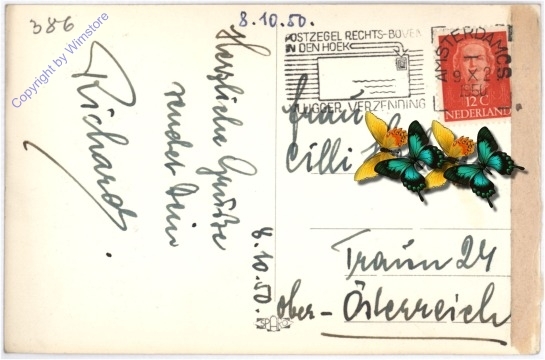 386
8.10.50.
Copyright by Wimstore
Herzliche Grüße
sendet Dein
Richard.
8.10.50.
POSTZEGEL RECHTS-BOVEN
IN DEN HOEK
VLUGGER VERZENDING
AMSTERDAM CS
9 X 2
195
12 C
NEDERLAND
Frau
Cilli
Traun 24
Ober-Österreich